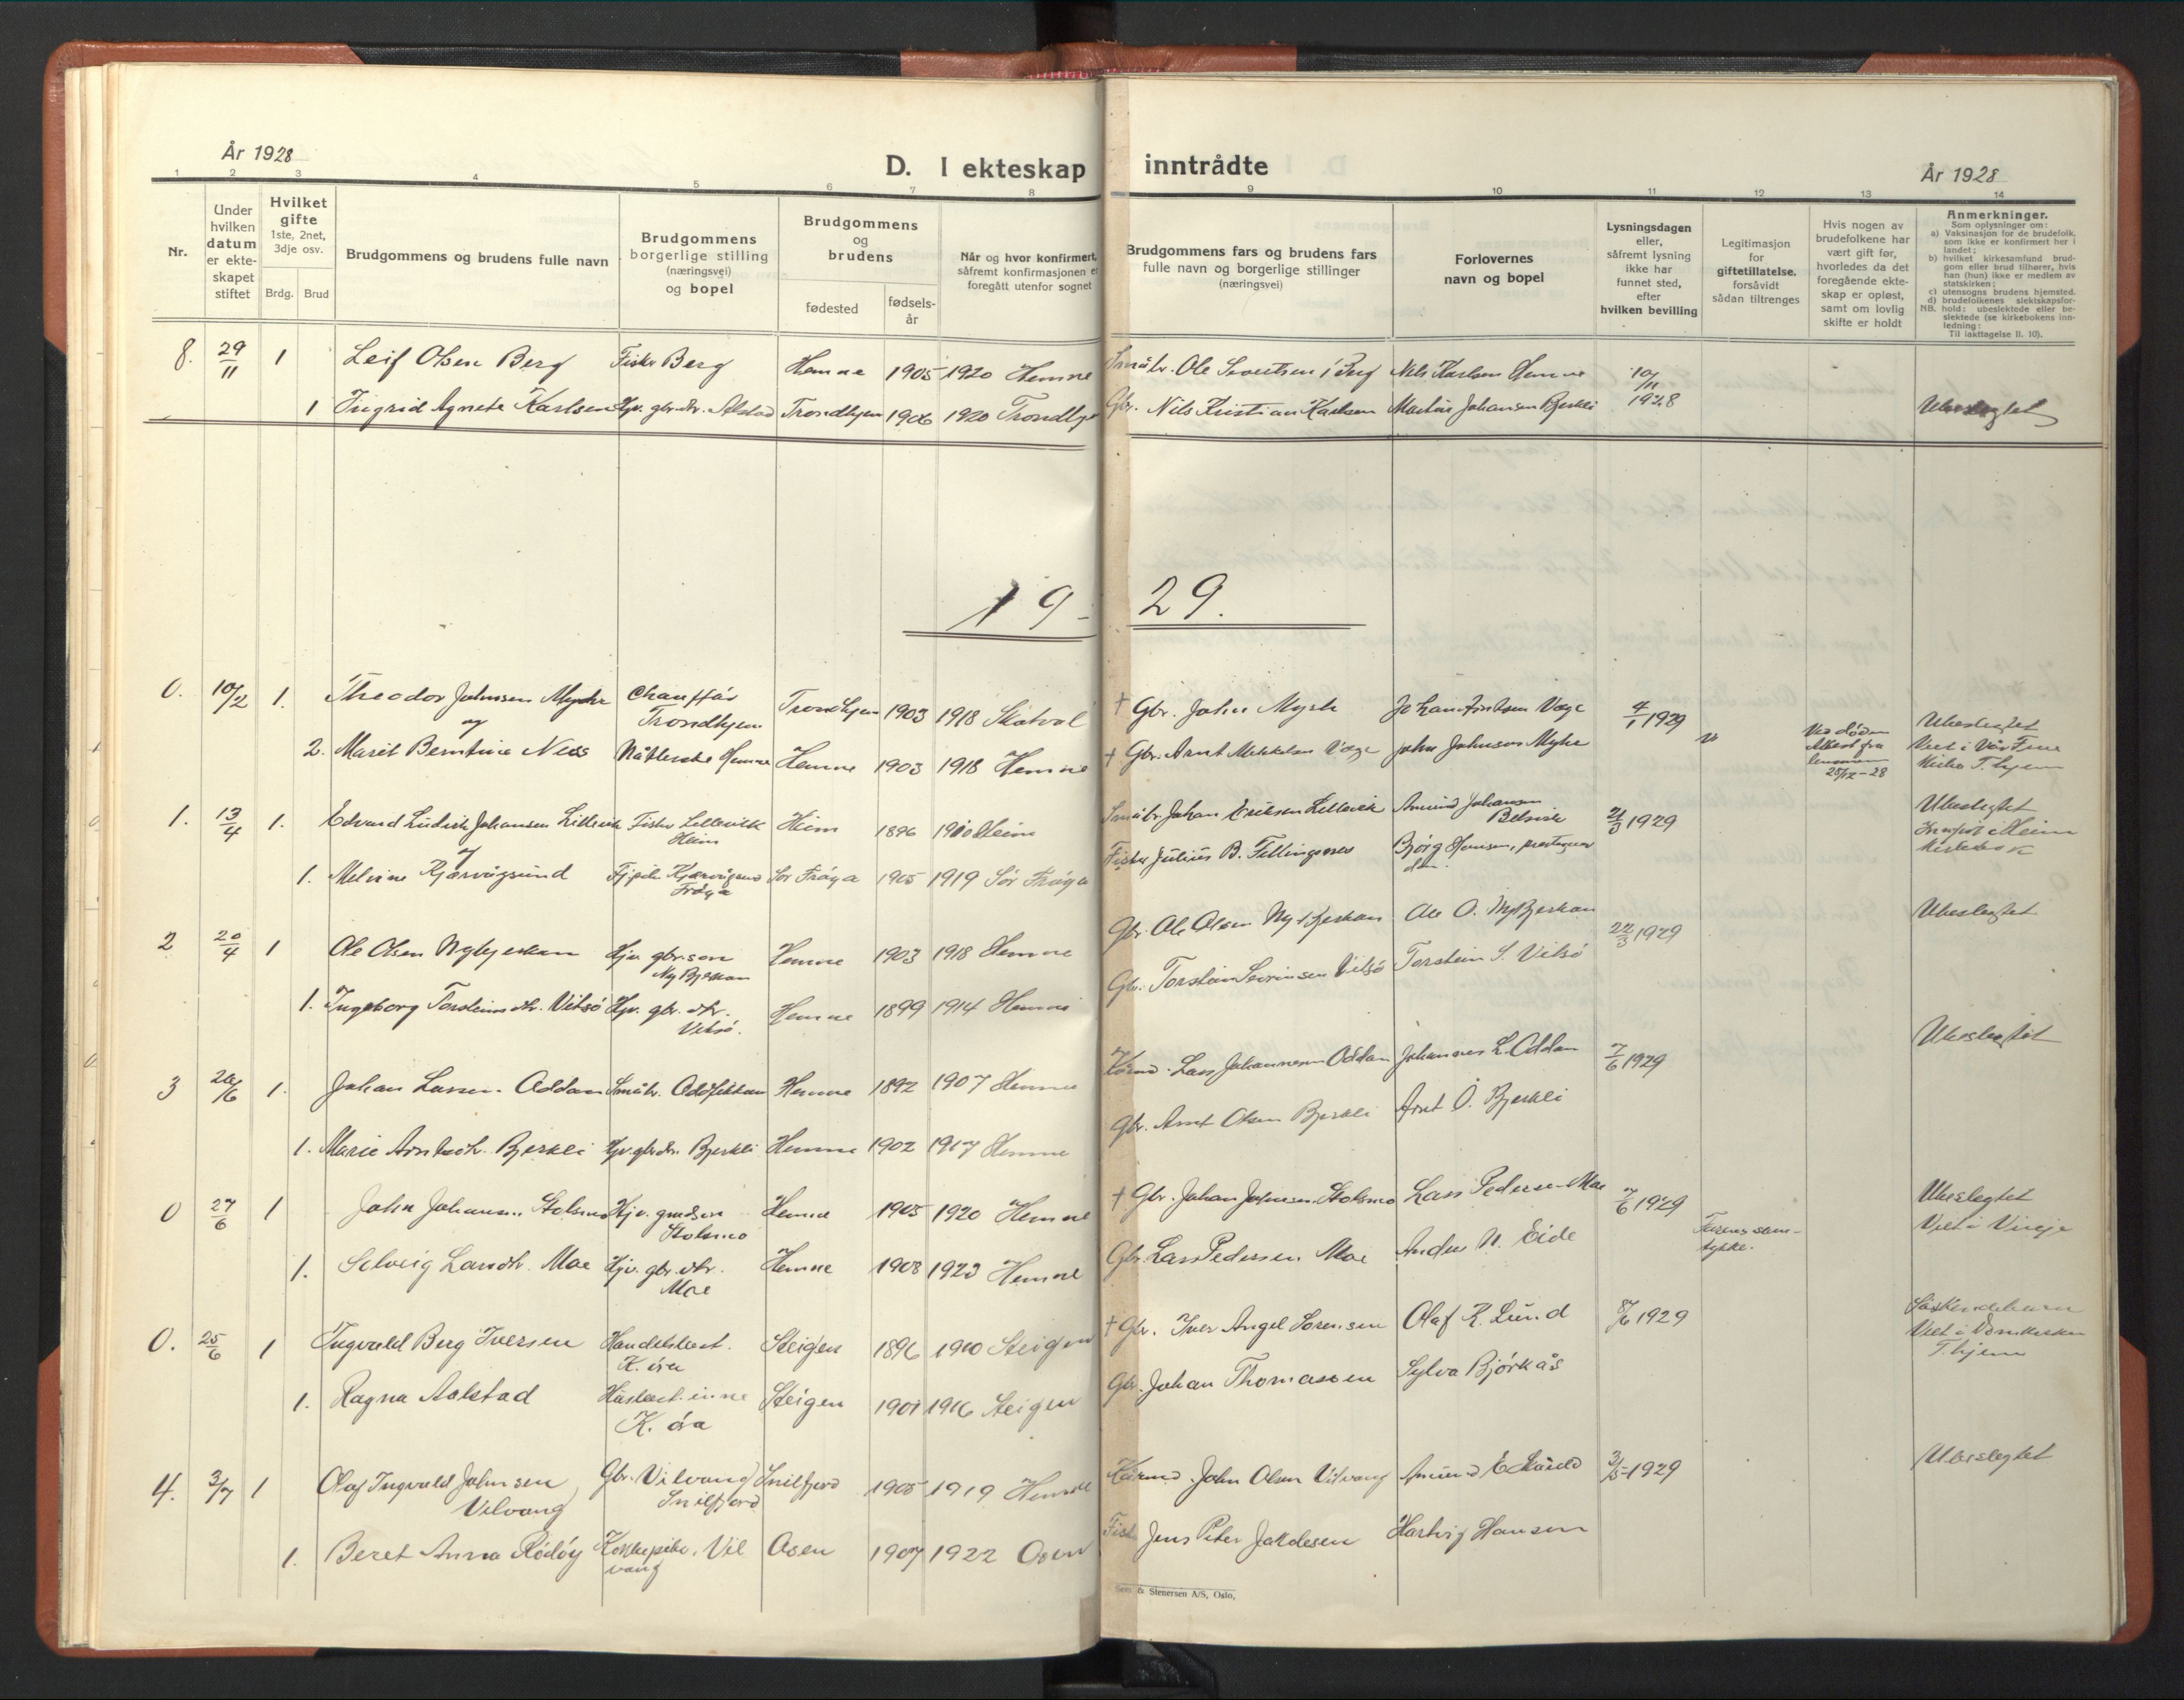 År 1928
D. I ekteskap inntrådte
År 1928
1 2 3 4 5 6 7 8 9 10 11 12 13 14
Nr.
Under hvilken datum er ekteskapet stiftet
Hvilket gifte 1ste, 2net, 3dje osv.
Brdg. Brud
Brudgommens og brudens fulle navn
Brudgommens borgerlige stilling (næringsvei) og bopel
Brudgommens og brudens
fødested
fødsels-år
Når og hvor konfirmert, såfremt konfirmasjonen er foregått utenfor sognet
Brudgommens fars og brudens fars fulle navn og borgerlige stillinger (næringsvei)
Forlovernes navn og bopel
Lysningsdagen eller, såfremt lysning ikke har funnet sted, efter hvilken bevilling
Legitimasjon for giftetillatelse, forsåvidt sådan tiltrenges
Hvis nogen av brudefolkene har vært gift før, hvorledes da det foregående ekteskap er opløst, samt om lovlig skifte er holdt
Anmerkninger.
Som oplysninger om:
a) Vaksinasjon for de brudefolk, som ikke er konfirmert her i landet;
b) hvilket kirkesamfund brudgom eller brud tilhører, hvis han (hun) ikke er medlem av statskirken;
c) utensogns brudens hjemsted.
d) brudefolkenes slektskapsforhold: ubeslektede eller beslektede (se kirkebokens innledning:
NB.
Til iakttagelse II. 10).
8. 29/11 1 Leif Olsen Berg Fisker Berg Hemne 1905 1920 Hemne Småbr. Ole Sivertsen Berg Nils Karlsen Hemne 10/11 1928
1 Ingrid Agnete Karlsen Hjv. gbr.dtr. Alstad Trondhjem 1906 1920 Trondhjem Gbr. Nils Kristian Karlsen Martin Johansen Bjerkli Ubeslegtet
19-29.
0. 10/2 1. Theodor Johnsen Myhr Chauffør Trondhjem Trondhjem 1903 1918 Skatval † Gbr. John Myhr Johan Arntsen Vage 4/1 1929
og
2. Marit Berntine Ness Hemne Hemne 1903 1918 Hemne † Gbr. Arnt Mikkelsen Vaage John Johnsen Myhr Ved døden Attest fra lensmann 28/12-28 Ubeslegtet Viet i Vår Frue Kirke T.hjem
1. 13/4 1. Edvard Ludvik Johansen Lillevik Fisker Lillevik Heim Heim 1896 1910 Heim Småbr. Johan Eriksen Lillevik Amund Johansen Belsvik 21/3 1929 Ubeslegtet Heim Kirkebok
og
1. Melvine Kjervågsund Kjervågsund Frøya Sør Frøya 1905 1919 Sør Frøya Fisker Julius B. Fillingsnes Bjørg Hansen, prestegården
2 20/4 1 Ole Olsen Nybjerkan Hjv. gbr.son Ny Bjerkan Hemne 1903 1918 Hemne Gbr. Ole Olsen Ny Bjerkan Ole O. Ny Bjerkan 22/3 1929 Ubeslegtet
1. Ingeborg Torsteinsdtr. Vitsø Hjv. gbr. dtr. Vitsø. Hemne 1899 1914 Hemne Gbr. Torstein Sevrinsen Vitsø Torstein S. Vitsø
3 26/6 1. Johan Larsen Oddan Småbr. Hemne 1892 1907 Hemne Kårmd. Lars Johannesen Oddan Johannes L. Oddan 7/6 1929 Ubeslegtet
1. Marie Arntsdtr. Bjerkli Hjv. gbr.dtr. Bjerkli Hemne 1902 1917 Hemne Gbr. Arnt Olsen Bjerkli Arnt O. Bjerkli
0 27/6 1 John Johansen Stolsmo Hjv. Stolsmo Hemne 1905 1920 Hemne † Gbr. Johan Johnsen Stolsmo Lars Pedersen Moe 7/6 1929 Ubeslegtet Viet i Vinje
1. Solveig Larsdtr. Moe Hjv. gbr. dtr. Moe Hemne 1908 1923 Hemne Gbr. Lars Pedersen Moe Anders N. Eide Farens samtykke.
0. 25/6 1 Ingvald Berg Iversen Handelsbest. K. øra Steigen 1896 1910 Steigen † Gbr. Iver Angel Sørensen Olaf R. Lund 8/6 1929 Søskendebarn Viet i Domkirken T.hjem
1. Ragna Aalstad K. øra Steigen 1901 1916 Steigen Gbr. Johan Thomassen Sylva Bjørkås
4. 3/7 1 Olaf Ingvald Johnsen Vilvang Gbr. Vilvang Snilfjord Snilfjord 1905 1919 Hemne Kårmd. John Olsen Vilvang 3/5 1929 Ubeslegtet
1. Beret Anna Rødøy Kokkepike. Vilvang Osen 1907 1922 Osen Fisk. Jens Peter Hartvig Hansen
Sem & Stenersen A/S, Oslo,